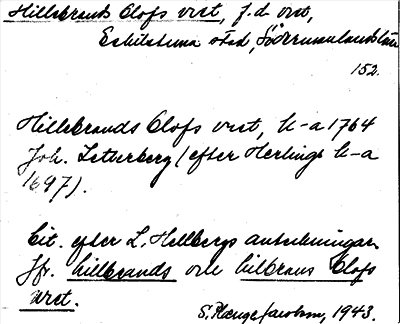 Hillebrands Olofs vret, f.d. vret,
Eskilstuna stad, Södermanlands län
152.
Hillebrands Olofs vret, k-a 1764
Joh. Zetterberg (efter Herlings k-a
1697).
Cit. efter L. Hellbergs anteckningar.
Jfr. hillbrands och hilbrans Olofs
vret.
S. Plænge Jacobson, 1943.